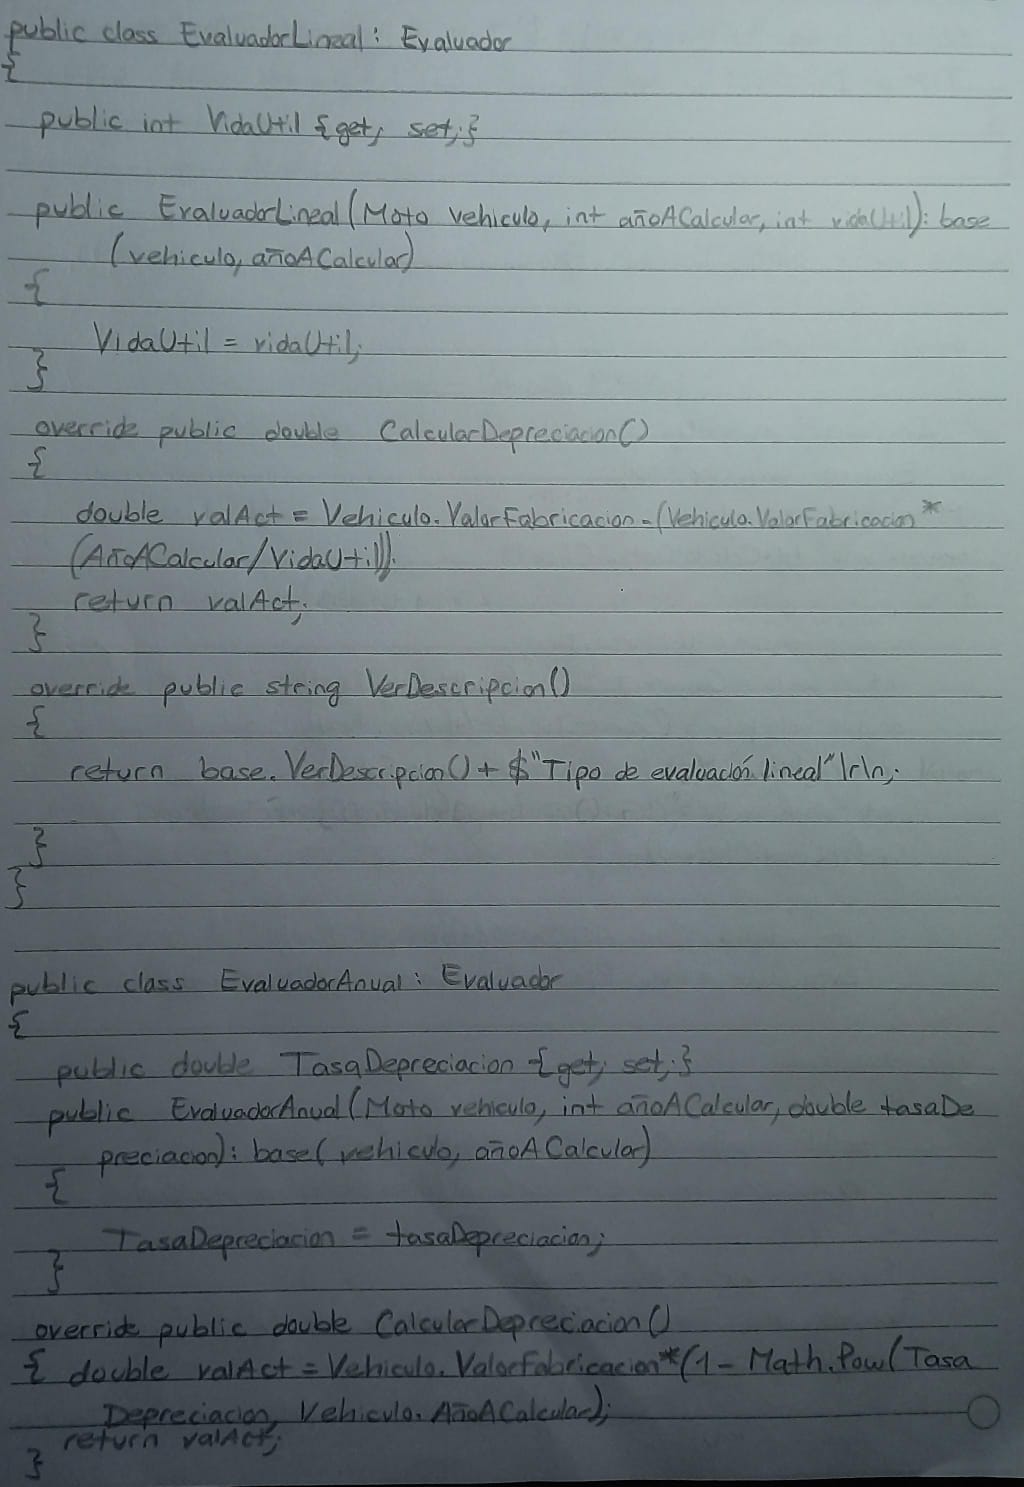 public class EvaluadorLineal : Evaluador
{
public int VidaUtil {get; set;}
public EvaluadorLineal(Moto vehiculo, int añoACalcular, int vidaUtil): base
(vehiculo, añoACalcular)
{
VidaUtil = vidaUtil;
}
override public double CalcularDepreciacion()
{
double valAct = Vehiculo.ValorFabricacion - (Vehiculo.ValorFabricacion *
(AñoACalcular/VidaUtil));
return valAct;
}
override public string VerDescripcion()
{
return base.VerDescripcion() + $"Tipo de evaluación lineal"\r\n;
}
}
public class EvaluadorAnual : Evaluador
{
public double TasaDepreciacion {get; set;}
public EvaluadorAnual(Moto vehiculo, int añoACalcular, double tasaDe
preciacion): base( vehiculo, añoACalcular)
{
TasaDepreciacion = tasaDepreciacion;
}
override public double CalcularDepreciacion()
{ double valAct = Vehiculo.ValorFabricacion*(1 - Math.Pow(Tasa
Depreciacion, Vehiculo.AñoACalcular);
return valAct;
}